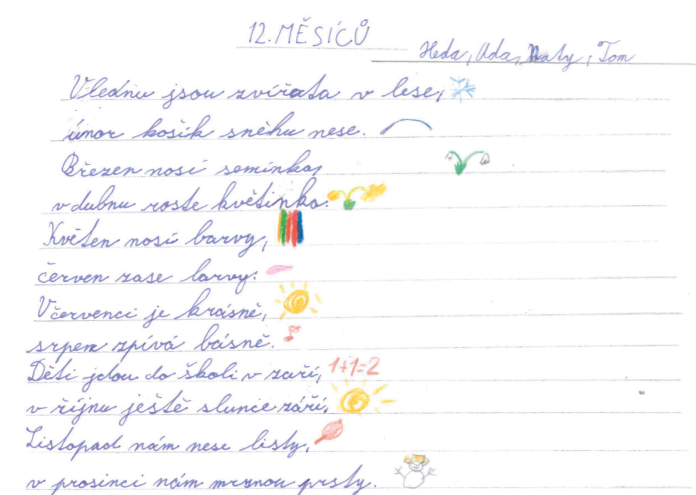 12. MĚSÍCŮ
Heda, Ada, Naty, Tom
V lednu jsou zvířata v lese,
únor košík sněhu nese.
Březen nosí semínka,
v dubnu roste květinka.
Květen nosí barvy,
červen zase larvy.
V červenci je krásně,
srpen zpívá básně.
Děti jdou do školi v zaří, 1+1=2
v říjnu ještě slunie září,
Listopad nám nese listy,
v prosinci nám mrznou prsty.